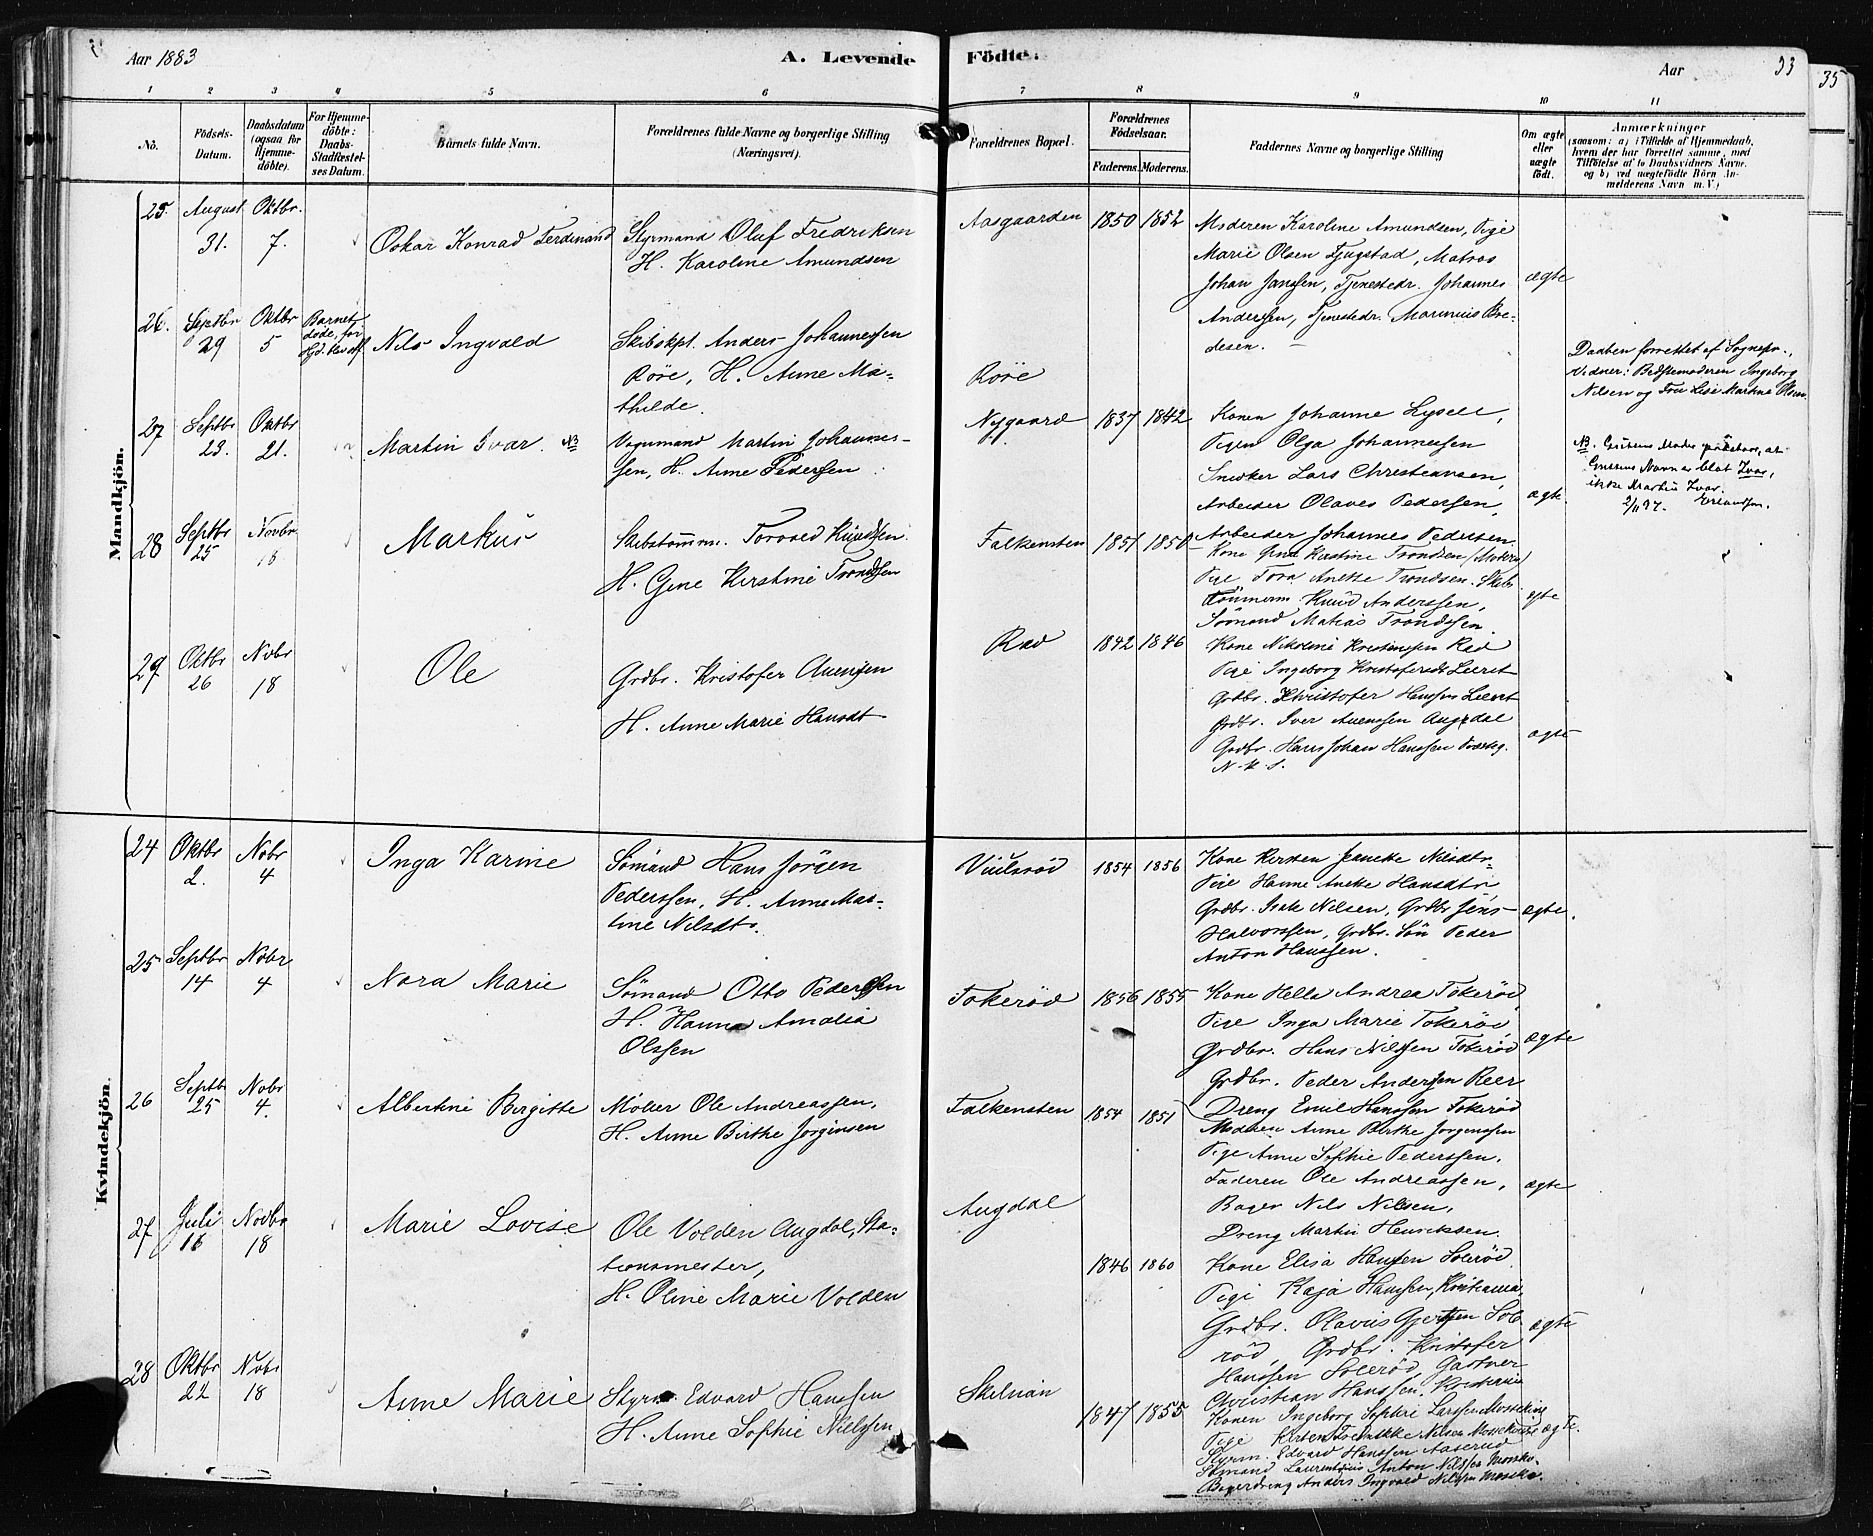 Aar 1883
A. Levende Födte.
Aar
33
35
1 2 3 4 5 6 7 8 9 10 11
No.
Födsels-
Datum.
Daabsdatum
(ogsaa for
Hjemme-
döbte).
For Hjemme-
döbte:
Daabs-
Stadfæstel-
ses Datum.
Barnets fulde Navn.
Forældrenes fulde Navne og borgerlige Stilling
(Næringsvei).
Forældrenes Bopæl.
Forældrenes
Födselsaar.
Faderens. Moderens.
Faddernes Navne og borgerlige Stilling
Om ægte
eller
uægte
födt.
Anmærkninger
(saasom: a) i Tilfælde af Hjemmedaab,
hvem der har forrettet samme, med
Tilföielse af to Daabsvidners Navne,
og b) ved uægtefödte Börn An-
melderens Navn m. V.)
Mandkjön.
25. August 31. Oktbr. 7.
Oskar Konrad Ferdinand
Styrmand Oluf Fredriksen
H. Karoline Amundsen
Aasgaarden 1850 1852
Moderen Karoline Amundsen, Pige
Marie Olsen Fjugstad, Matros
Johan Janssen, Tjenestedr. Johannes
Anderssen, Tjenestedr. Marinius Bre-
desen.
ægte
26. Septbr 29 Oktbr 5
Barnet
döde, för
Nils Ingvald
Skibskpt. Anders Johannessen
Röre, H. Anne Ma-
thilde.
Röre
Daaben forrettet af Sognepr.,
Vidner: Bedstemoderen Ingeborg
Nilsen og Fru Lise Martine Olsen
27 Septbr 23. Oktbr 21.
Martin Ivar. NB
Vognmand Martin Johannes-
sen, H. Anne Pedersen
Nygaard 1837 1842
Konen Johanne Lysell,
Pigen Olga Johannessen
Snedker Lars Christiansen,
Arbeider Olaves Pedersen,
Arbeider Johannes Pedersen
ægte.
NB. Guttens Moder paastaar, at
Guttens Navn er blot Ivar,
ikke Martin Ivar.
2/11 97. Erlandsen.
28 Septbr 25 Novbr 18
Markus
Skibstömm. Torvald Knudsen
H. Gine Kerstine Trondsen
Falkensten 1851 1850
Kone Gina Kerstine Trondsen (Moderen)
Pige Tora Anette Trondsen. Skibs
Tömmerm. Knud Anderssen,
Sömand Matias Trondssen
ægte
29 Oktbr 26 Nobr 18
Ole
Grdbr. Kristofer Auensen
H. Anne Marie Hansdt
Rød 1842 1846
Kone Nikoline Kristensen Rød
Pige Ingeborg Kristofersdt Leeret
Grdbr. Christofer Hanssen Leeret
Grdbr. Iver Auenssen Augedal
Grdbr. Hans Johan Hanssen
N. K. S.
ægte
Kvindekjön.
24 Oktbr 2. Nobr 4
Inga Karine
Sömand Hans Jörgen
Pederssen, H. Anne Mar-
tine Nilsdtr.
Viulsröd 1854 1856
Kone Kirsten Jeanette Nilsdtr
Pige Hanne Aneke Hansdtr
Grdbr. Isak Nilsen, Grdbr Jens
Halvorssen, Grdbr. Sön Peder
Anton Hanssen.
ægte.
25 Septbr 14 Nobr 4
Nora Marie
Sömand Otto Pederssen
H. Hanna Amalia
Olssen
Tokeröd 1856 1855
Kone Hella Andrea Tokeröd
Pige Inga Marie Tokeröd
Grdbr. Hans Nilssen Tokeröd
Grdbr. Peder Anderssen Reer
Dreng Emil Hanssen Tokeröd
ægte
26 Septbr 25 Nobr 4.
Albertine Birgitte
Möller Ole Andreassen,
H. Anne Birthe Jorginsen
Falkensten 1854 1851
Moderen Anne Birthe Jorgenssen
Pige Anne Sophie Pederssen.
Faderen Ole Andreassen,
Bager Nils Nilsen,
Dreng Martin Henriksen.
ægte
27 Juli 16 Novbr 18
Marie Lovise
Ole Volden Augdal, Sta-
tionsmester,
H. Oline Marie Volden
Augdal 1846 1860
Kone Elisa Hanssen Soleröd
Pige Kaja Hanssen, Kristiania,
Grdbr. Olavus Gjertsen Sol-
röd, Grdbr. Kristofer
Hanssen Soleröd, Gartner
Christian Hanssen, Kristiania
ægte
28 Oktbr 22 Nobr 18
Anne Marie
Styrm. Edvard Hanssen
H. Anne Sophie Nielssen
Skelvian 1847 1855
Konen Ingeborg Sophie Larssen
Pige Kirsten Fredrikke Nilsen
Styrm. Edvard Hanssen Aaserud
Sömand Laurentius Anton Nilssen
Bagerdreng Anders Ingvald Nilssen
ægte.